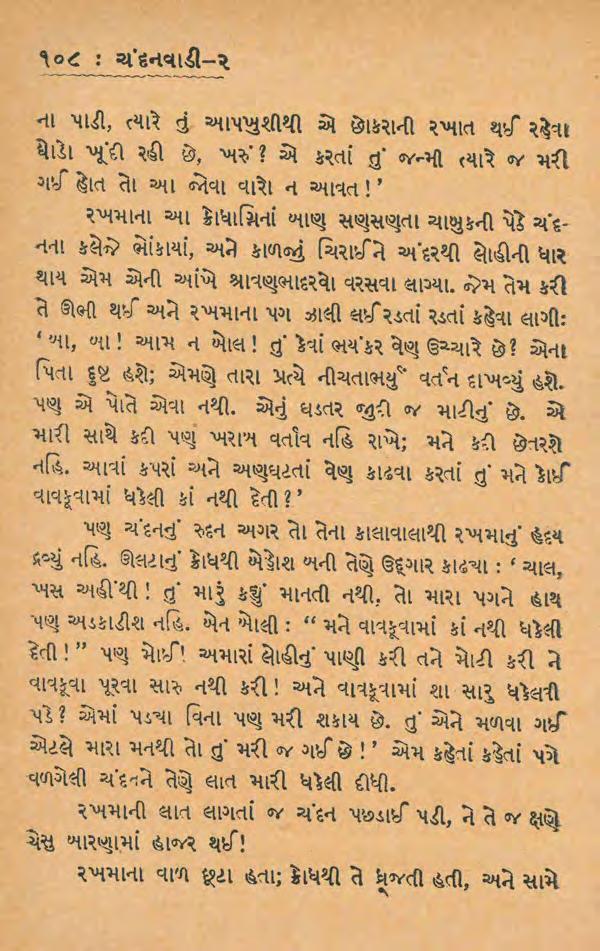 ૧૦૮ : ચંદનવાડી–૨
ના પાડી, ત્યારે તું આપખુશીથી એ છોકરાની રખાત થઈ રહેવા
ઘોડો ખૂંદી રહી છે, ખરું? એ કરતાં તું જન્મી ત્યારે જ મરી
ગઈ હોત તો આ જોવા વારો ન આવત!’
રખમાના આ ક્રોધાગ્નિનાં બાણ સણસણતા ચાબુકની પેઠે ચંદ-
નના કલેજે ભોંકાયાં, અને કાળજું ચિરાઈને અંદરથી લોહીની ધાર
થાય એમ એની આંખે શ્રાવણભાદરવો વરસવા લાગ્યા. જેમ તેમ કરી
તે ઊભી થઈ અને રખમાના પગ ઝાલી લઈ રડતાં રડતાં કહેવા લાગી:
‘બા, બા! આમ ન બોલ! તું કેવાં ભયંકર વેણ ઉચ્ચારે છે? એના
પિતા દુષ્ટ હશે; એમણે તારા પ્રત્યે નીચતાભર્યું વર્તન દાખવ્યું હશે.
પણ એ પોતે એવા નથી. એનું ઘડતર જુદી જ માટીનું છે. એ
મારી સાથે કદી પણ ખરાબ વર્તાવ નહિ રાખે; મને કદી છેતરશે
નહિ. આવાં કપરાં અને અણઘટતાં વેણ કાઢવા કરતાં તું મને કોઈ
વાવકૂવામાં ધકેલી કાં નથી દેતી?’
પણ ચંદનનું રુદન અગર તો તેના કાલાવાલાથી રખમાનું હૃદય
દ્રવ્યું નહિ. ઊલટાનું ક્રોધથી બેહોશ બની તેણે ઉદ્ગાર કાઢ્યા : ‘ચાલ,
ખસ અહીંથી! તું મારું કશું માનતી નથી, તો મારા પગને હાથ
પણ અડકાડીશ નહિ. બેન બોલી : “મને વાવકૂવામાં કાં નથી ધકેલી
દેતી!” પણ મોઈ! અમારાં લોહીનું પાણી કરી તને મોટી કરી ને
વાવકૂવા પૂરવા સારુ નથી કરી! અને વાવકૂવામાં શા સારુ ધકેલવી
પડે? એમાં પડ્યા વિના પણ મરી શકાય છે. તું એને મળવા ગઈ
એટલે મારા મનથી તો તું મરી જ ગઈ છે!’ એમ કહેતાં કહેતાં પગે
વળગેલી ચંદનને તેણે લાત મારી ધકેલી દીધી.
રખમાની લાત લાગતાં જ ચંદન પછડાઈ પડી, ને તે જ ક્ષણે
ચેસુ બારણામાં હાજર થઈ!
રખમાના વાળ છૂટા હતા; ક્રોધથી તે ધ્રૂજતી હતી, અને સામે